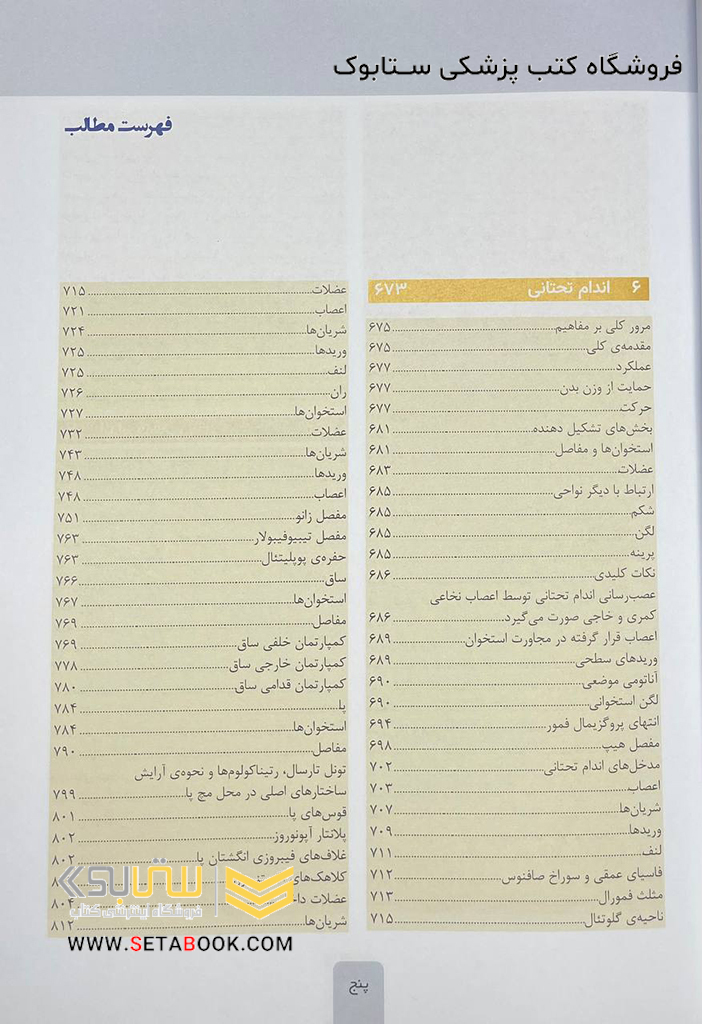 فروشگاه کتب پزشکی ستابوک
فهرست مطالب
۶ اندام تحتانی ۶۷۳
مرور کلی بر مفاهیم ۶۷۵
مقدمه‌ی کلی ۶۷۵
عملکرد ۶۷۷
حمایت از وزن بدن ۶۷۷
حرکت ۶۷۷
بخش‌های تشکیل دهنده ۶۸۱
استخوان‌ها و مفاصل ۶۸۱
عضلات ۶۸۳
ارتباط با دیگر نواحی ۶۸۵
شکم ۶۸۵
لگن ۶۸۵
پرینه ۶۸۵
نکات کلیدی ۶۸۶
عصب‌رسانی اندام تحتانی توسط اعصاب نخاعی
کمری و خاجی صورت می‌گیرد ۶۸۶
اعصاب قرار گرفته در مجاورت استخوان ۶۸۹
وریدهای سطحی ۶۸۹
آناتومی موضعی ۶۹۰
لگن استخوانی ۶۹۰
انتهای پروگزیمال فمور ۶۹۴
مفصل هیپ ۶۹۸
مدخل‌های اندام تحتانی ۷۰۲
اعصاب ۷۰۳
شریان‌ها ۷۰۷
وریدها ۷۰۹
لنف ۷۱۱
فاسیای عمقی و سوراخ صافنوس ۷۱۲
مثلث فمورال ۷۱۳
ناحیه‌ی گلوتئال ۷۱۵
عضلات ۷۱۵
اعصاب ۷۲۱
شریان‌ها ۷۲۴
وریدها ۷۲۵
لنف ۷۲۵
ران ۷۲۶
استخوان‌ها ۷۲۷
عضلات ۷۳۲
شریان‌ها ۷۴۳
وریدها ۷۴۸
اعصاب ۷۴۸
مفصل زانو ۷۵۱
مفصل تیبیوفیبولار ۷۶۳
حفره‌ی پوپلیتئال ۷۶۳
ساق ۷۶۶
استخوان‌ها ۷۶۷
مفاصل ۷۶۹
کمپارتمان خلفی ساق ۷۶۹
کمپارتمان خارجی ساق ۷۷۸
کمپارتمان قدامی ساق ۷۸۰
پا ۷۸۴
استخوان‌ها ۷۸۴
مفاصل ۷۹۰
تونل تارسال، رتیناکولوم‌ها و نحوه‌ی آرایش
ساختارهای اصلی در محل مچ پا ۷۹۹
قوس‌های پا ۸۰۱
پلانتار آپونوروز ۸۰۲
غلاف‌های فیبروزی انگشتان پا ۸۰۲
کلاهک‌های
عضلات ۸۰۴
شریان‌ها ۸۱۲
ستابوک
فروشگاه اینترنتی کتاب
WWW.SETABOOK.COM
پنج